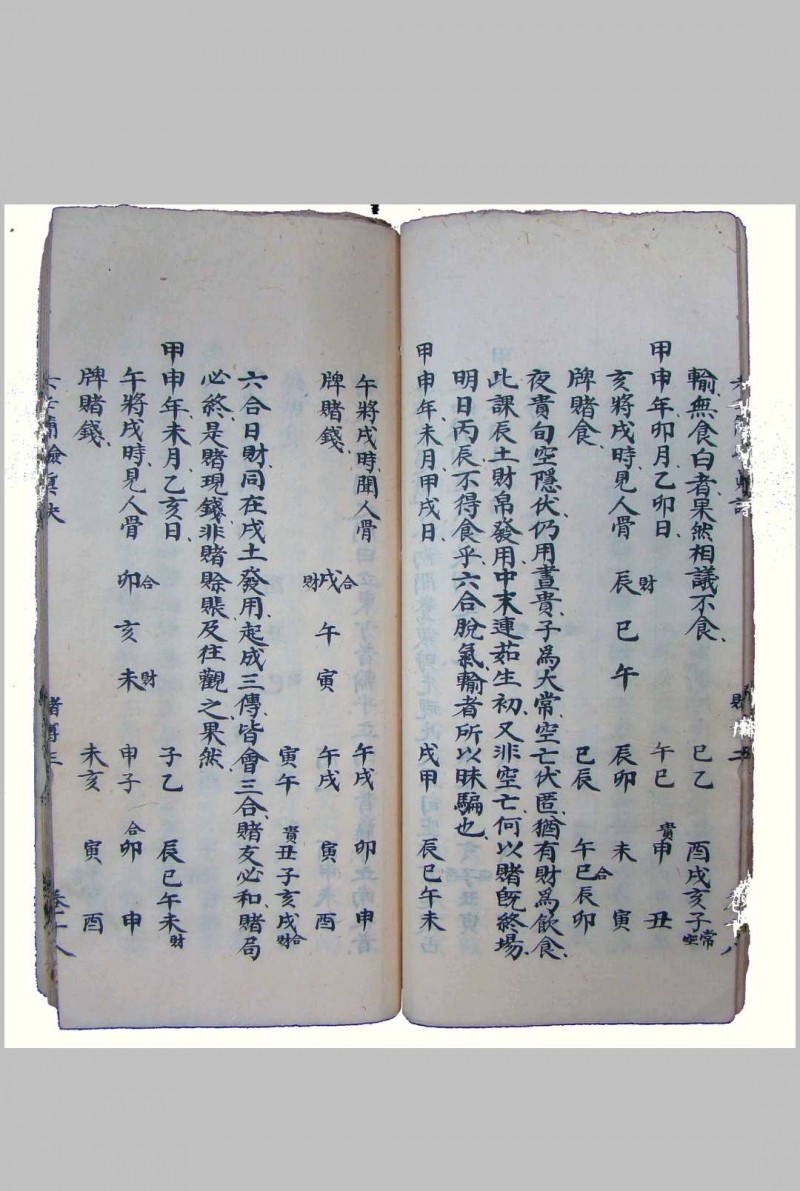 輸、無食白者、果然相議不食、
甲申年卯月乙卯日、 巳乙 酉戌亥子常空
亥將戌時、見人骨 辰財 巳 午 午巳 貴申 丑
牌賭食、 辰卯 未 寅
巳辰 午巳合辰卯
夜貴旬空隱伏、仍用晝貴、子為太常、空亡伏匿、猶有財為飲食、
此課辰土財帛發用、中末連茹生初、又非空亡、何以賭既終場、
明日丙辰不得食乎、六合脫氣、輸者所以昧騙也、
甲申年未月甲戌日、 戌甲 辰巳午未
午將戌時、聞人骨 戌合財 午 寅 午戌 卯 申
牌賭錢、 午戌 寅 酉
寅午 貴丑子亥戌合財
六合日財、同在戌土發用、起成三傳、皆會三合、賭友必和、賭局
必終、是賭現錢、非賭賒賬、及往觀之果然、
甲申年未月乙亥日、 子乙 辰巳午未財
午將戌時、見人骨 卯合 亥 未財 申子 合卯 申
牌賭錢、 未亥 寅 酉